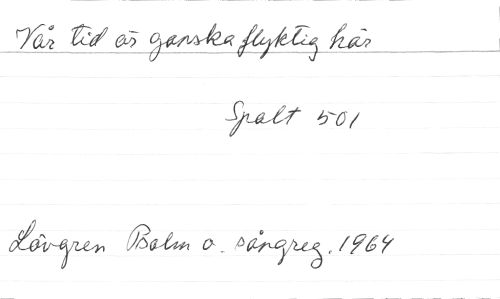 Vår tid är ganska flyktig här
Spalt 501
Lövgren Psalm o. sångreg. 1964